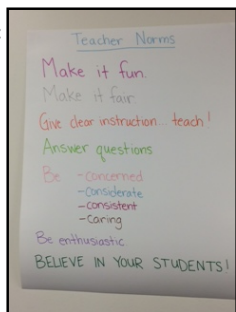 Teacher Norms
Make it fun.
Make it fair
Give clear instruction... teach!
Answer questions
Be - concerned
- considerate
- consistent
- caring
Be enthusiastic
BELIEVE IN YOUR STUDENTS!